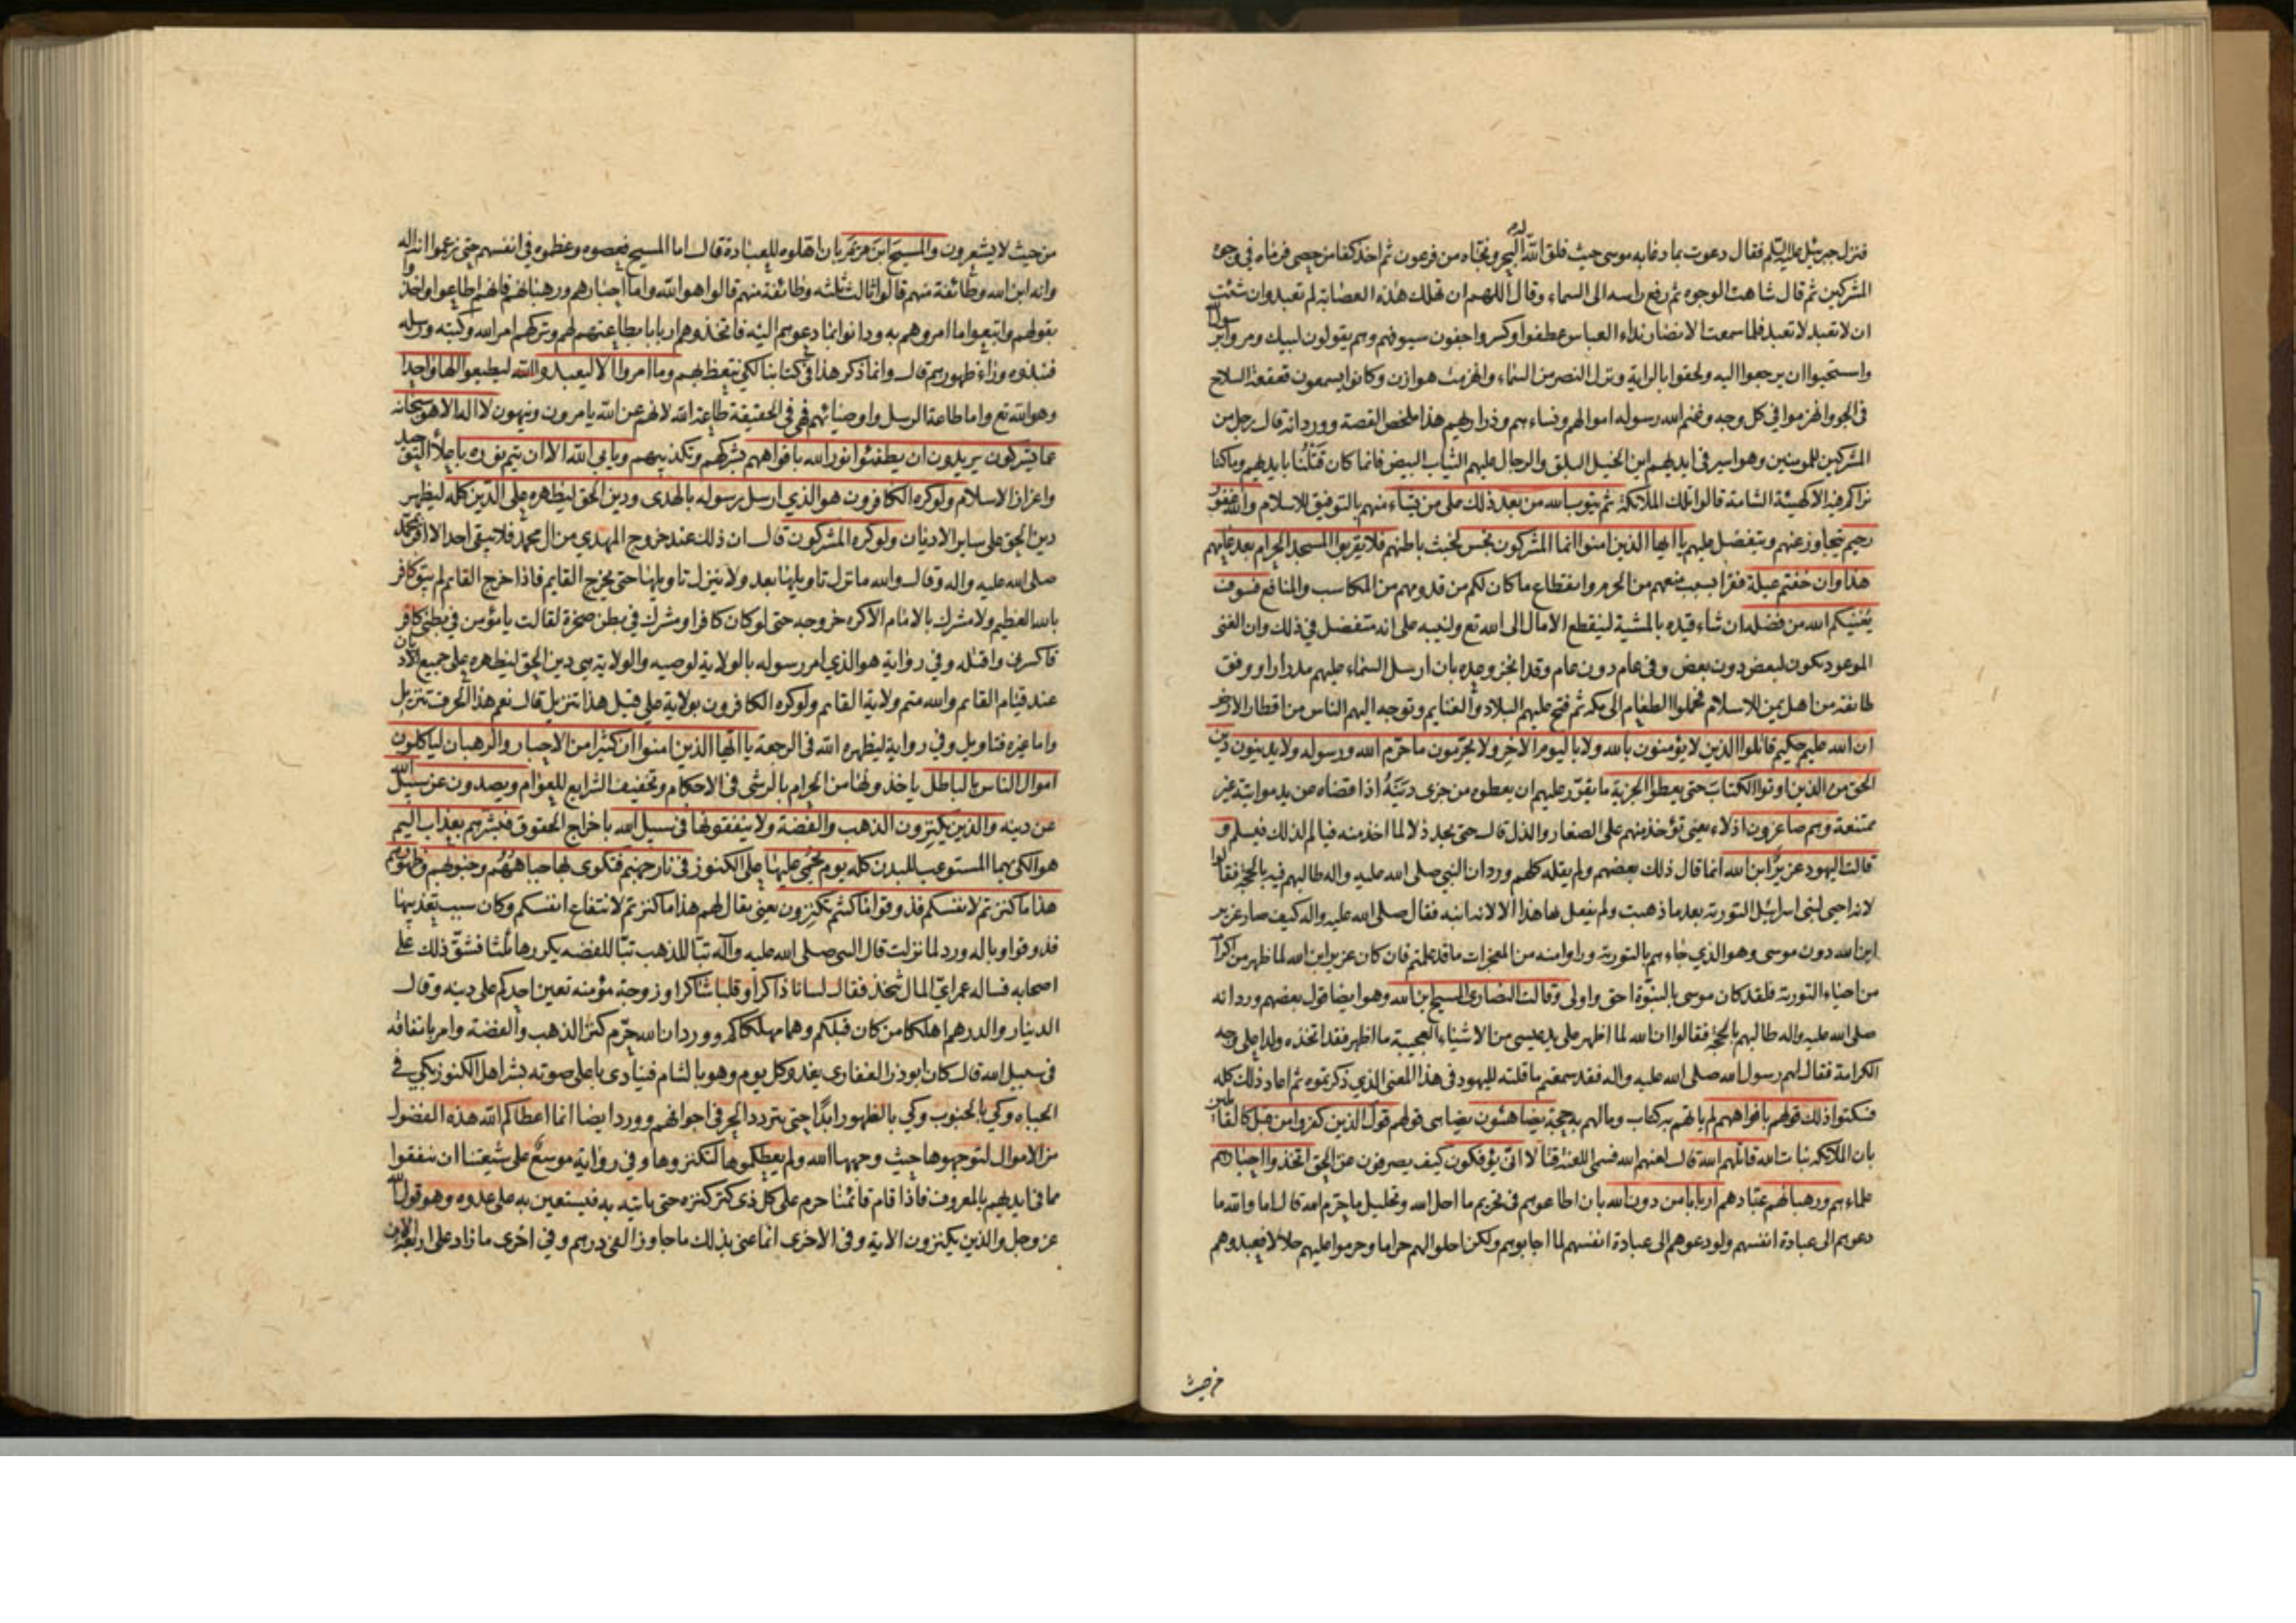 فنزل جبرئيل عليه السلم فقال دعوت بما دعا به موسى حيث فلق الله له البحر ونجاه من فرعون ثم اخذ كفا من حصى فرماه في وجوه
المشركين ثم قال شاهت الوجوه ثم رفع راسه الى السماء وقال اللهم ان تهلك هذه العصابة لم تعبد وان شئت
ان لا تعبد لا تعبد فلما سمعت الانصار نداء العباس عطفوا وكسروا جفون سيوفهم وهم يقولون لبيك ومروا برسول الله
واستحيوا ان يرجعوا اليه ولحقوا بالراية ونزل النصر من السماء وانهزمت هوازن وكانوا يسمعون قعقعة السلاح
في الجو وانهزموا في كل وجه وغنم الله رسوله اموالهم ونساءهم وذراريهم هذا ملخص القصة وورد انه قال رجل من
المشركين للمومنين وهو اسير في ايديهم اين الخيل البلق والرجال عليهم الثياب البيض فانما كان قتلنا بايديهم وما كنا
نراكم فيه الا كهيئة الشامة قالوا تلك الملائكة ثم يتوب الله من بعد ذلك على من يشاء منهم بالتوفيق للاسلام والله غفور
رحيم يتجاوز عنهم ويتفضل عليهم يا ايها الذين امنوا انما المشركون نجس لخبث باطنهم فلا يقربوا المسجد الحرام بعد عامهم
هذا وان خفتم عيلة فقرا بسبب منعهم من الحرم وانقطاع ما كان لكم من قدومهم من المكاسب والمنافع فسوف
يغنيكم الله من فضله ان شاء قيده بالمشية لينقطع الامال الى الله تع ولينبه على انه متفضل في ذلك وان الغنى
الموعود يكون لبعض دون بعض وفي عام دون عام وقد انجز وعده بان ارسل السماء عليهم مدرارا ووفق
طائفة من اهل يمن للاسلام فحملوا الطعام الى مكه ثم فتح عليهم البلاد والغنايم وتوجه اليهم الناس من اقطار الارض
ان الله عليم حكيم قاتلوا الذين لا يؤمنون بالله ولا باليوم الاخر ولا يحرمون ما حرم الله ورسوله ولا يدينون دين
الحق من الذين اوتوا الكتاب حتى يعطوا الجزية ما يقرر عليهم ان يعطوه من جزى دينه اذا قضاه عن يد مواتية غير
ممتنعة وهم صاغرون اذلاء يعني تؤخذ منهم على الصغار والذل قال حتى يجد ذلا لما اخذ منه فيالم لذلك فيسلم و
قالت اليهود عزير ابن الله انما قال ذلك بعضهم ولم يقله كلهم وورد ان النبي صلى الله عليه واله طالبهم فيه بالحجة فقالوا
لانه احيى لبني اسرائيل التورية بعد ما ذهبت ولم يفعل بها هذا الا لانه ابنه فقال صلى الله عليه واله كيف صار عزير
ابن الله دون موسى وهو الذي جاءهم بالتورية وراوا منه من المعجزات ما قد علمتم فان كان عزير ابن الله لما ظهر من اكرامه
من احياء التورية فلقد كان موسى بالبنوة احق واولى وقالت النصارى المسيح ابن الله وهو ايضا قول بعضهم ورد انه
صلى الله عليه واله طالبهم بالحجة فقالوا ان الله لما اظهر على يد عيسى من الاشياء العجيبة ما اظهر فقد اتخذه ولدا على وجه
الكرامة فقال لهم رسول الله صلى الله عليه واله فقد سمعتم ما قلته لليهود في هذا المعنى الذي ذكرتموه ثم اعاد ذلك كله
فسكتوا ذلك قولهم بافواههم لم ياتهم به كتاب وما لهم به حجة يضاهئون يضاهى قولهم قول الذين كفروا من قبل كالقائلين
بان الملائكة بنات الله قاتلهم الله قال لعنهم الله فسمى اللعنة قتالا انى يؤفكون كيف يصرفون عن الحق اتخذوا احبارهم
علماءهم ورهبانهم عبادهم اربابا من دون الله بان اطاعوهم في تحريم ما احل الله وتحليل ما حرم الله قال اما والله ما
دعوهم الى عبادة انفسهم ولو دعوهم الى عبادة انفسهم لما اجابوهم ولكن احلوا لهم حراما وحرموا عليهم حلالا فعبدوهم
من حيث
من حيث لا يشعرون والمسيح ابن مريم بان اهلوه للعبادة قال اما المسيح فعصوه وعظموه في انفسهم حتى زعموا انه اله
وانه ابن الله وطائفة منهم قالوا ثالث ثلثة وطائفة منهم قالوا هو الله واما احبارهم ورهبانهم فانهم اطاعوا واخذوا
بقولهم واتبعوا ما امروهم به ودانوا بما دعوهم اليه فاتخذوهم اربابا بطاعتهم لهم وتركهم امر الله وكتبه ورسله
فنبذوه وراء ظهورهم قال وانما ذكر هذا في كتابنا لكي نتعظ بهم وما امروا الا ليعبدوا الله ليطيعوا الها واحدا
وهو الله تع واما طاعة الرسل واوصيائهم فهي في الحقيقة طاعة الله لانهم عن الله يامرون وينهون لا اله الا هو سبحانه
عما يشركون يريدون ان يطفئوا نور الله بافواههم بشركهم وتكذيبهم ويابى الله الا ان يتم نوره باعلاء التوحيد
واعزاز الاسلام ولو كره الكافرون هو الذي ارسل رسوله بالهدى ودين الحق ليظهره على الدين كله ليظهر
دين الحق على ساير الاديان ولو كره المشركون قال ان ذلك عند خروج المهدي من ال محمد فلا يبقى احد الا اقر بمحمد
صلى الله عليه واله وقال والله ما نزل تاويلها بعد ولا ينزل تاويلها حتى يخرج القايم فاذا خرج القايم لم يبق كافر
بالله العظيم ولا مشرك بالامام الا كره خروجه حتى لو كان كافرا ومشرك في بطن صخرة لقالت يا مؤمن في بطني كافر
فاكسرني واقتله وفي رواية هو الذي امر رسوله بالولاية لوصيه والولاية هي دين الحق ليظهره على جميع الاديان
عند قيام القايم والله متم ولاية القايم ولو كره الكافرون بولاية علي قيل هذا تنزيل قال نعم هذا الحرف تنزيل
واما غيره فتاويل وفي رواية ليظهره الله في الرجعة يا ايها الذين امنوا ان كثيرا من الاحبار والرهبان لياكلون
اموال الناس بالباطل ياخذونها من الحرام بالرشى في الاحكام وتخفيف الشرايع للعوام ويصدون عن سبيل الله
عن دينه والذين يكنزون الذهب والفضة ولا ينفقونها في سبيل الله باخراج الحقوق فبشرهم بعذاب اليم
هو الكي بهما المستوعب للبدن كله يوم يحمى عليها على الكنوز في نار جهنم فتكوى بها جباههم وجنوبهم وظهورهم
هذا ما كنزتم لانفسكم فذوقوا ما كنتم تكنزون يعني يقال لهم هذا ما كنزتم لانتفاع انفسكم وكان سبب تعذيبها
فذوقوا وباله ورد لما نزلت قال النبي صلى الله عليه وآله تبا للذهب تبا للفضه يكررها ثلثا فشق ذلك على
اصحابه فساله عمر اي المال نتخذ فقال لسانا ذاكرا وقلبا شاكرا وزوجة مؤمنه تعين احدكم على دينه وقال
الدينار والدرهم اهلكا من كان قبلكم وهما مهلكاكم وورد ان الله حرم كنز الذهب والفضة وامر بانفاقه
في سبيل الله قال كان ابوذر الغفاري يغدو كل يوم وهو بالشام فينادى باعلى صوته بشر اهل الكنوز بكي في
الجباه وكي بالجنوب وكي بالظهور ابدا حتى يتردد الحر في اجوافهم وورد ايضا انما اعطاكم الله هذه الفضول
من الاموال لتوجهوها حيث وجهها الله ولم يعطكموها لتكنزوها وفي رواية موسع على شيعتنا ان ينفقوا
مما في ايديهم بالمعروف فاذا قام قائمنا حرم على كل ذي كنز كنزه حتى ياتيه به فيستعين به على عدوه وهو قول الله
عز وجل والذين يكنزون الاية وفي الاخرى انما عنى بذلك ما جاوز الفي درهم وفي اخرى ما زاد على اربعة الاف